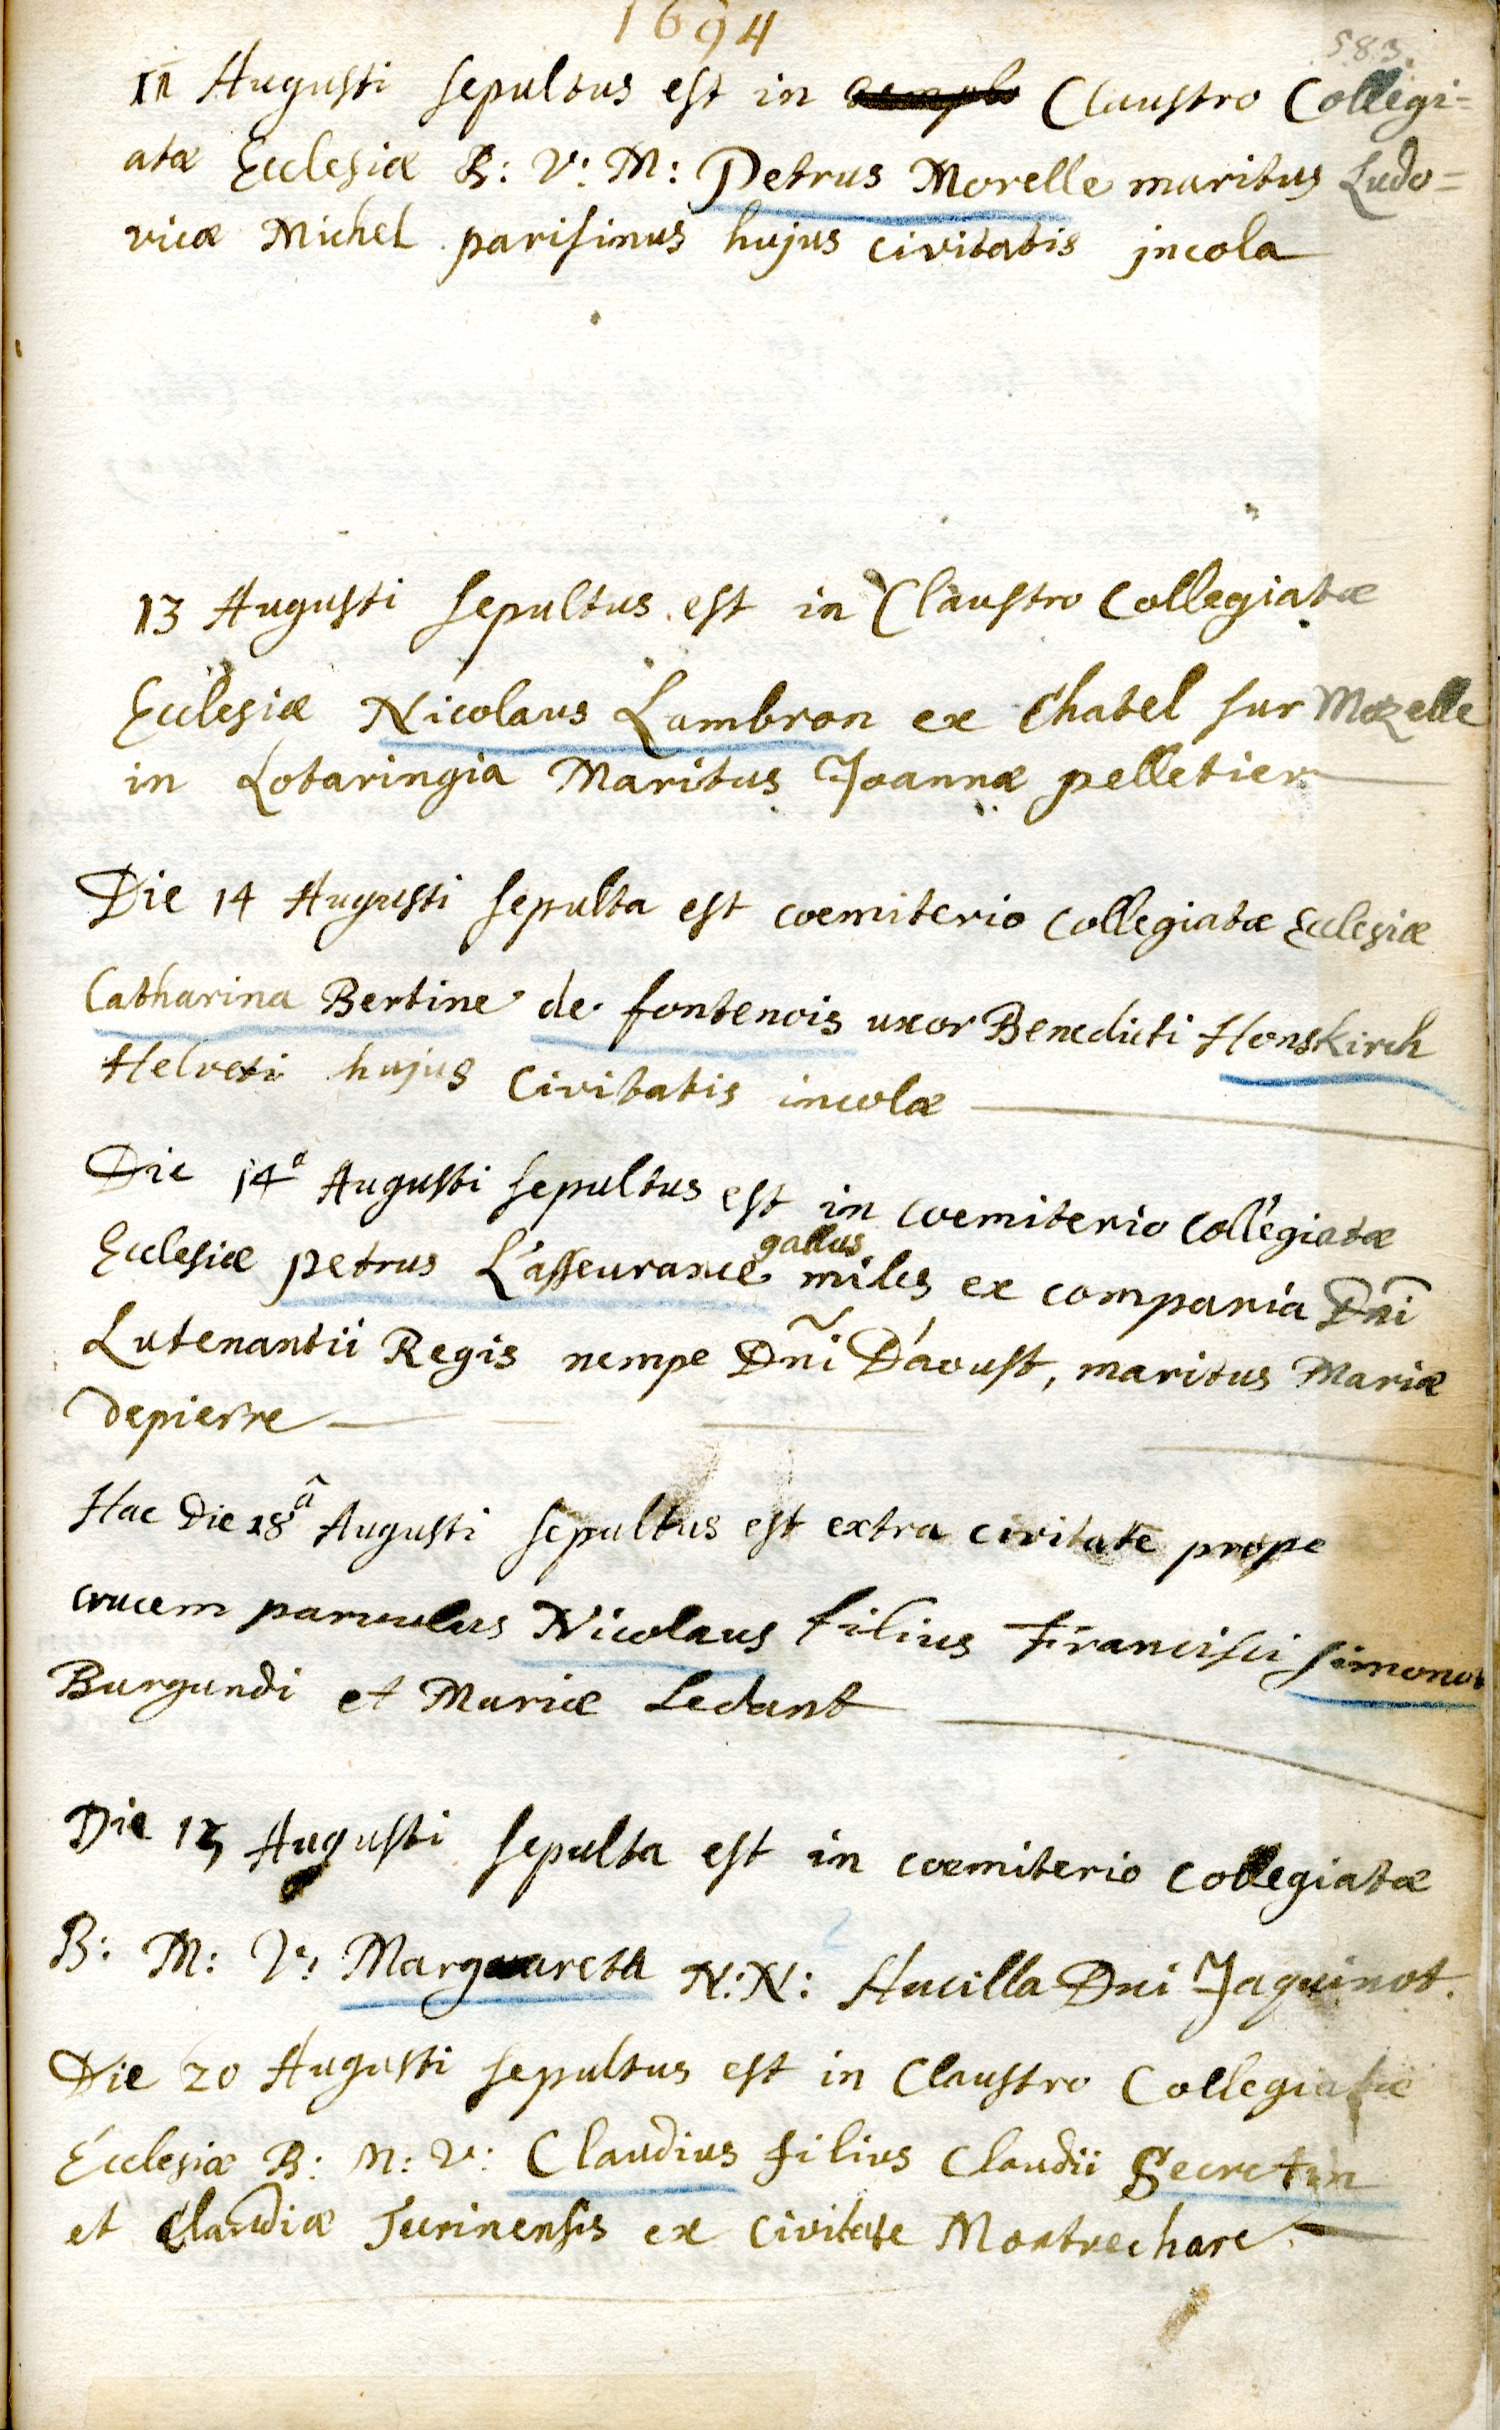 1694
583.
11 Augusti sepultus est in templo Claustro Collegi=
atæ Ecclesiæ B: V: M: Petrus Morelle maritus Ludo=
vicæ Michel parisinus hujus civitatis jncola
13 Augusti sepultus est in Claustro Collegiatæ
Ecclesiæ Nicolaus Lambron ex Chatel sur Mozelle
in Lotaringia Maritus Joannæ pelletier
Die 14 Augusti sepulta est coemiterio Collegiatæ Ecclesiæ
Catharina Bertine de fontenois uxor Benedicti Honskirch
Helveti hujus Civitatis incolæ
Die 14a Augusti sepultus est in coemiterio Collegiatæ
gallus
Ecclesiæ petrus L'asseurance miles ex compania Dni
Lutenantii Regis nempe Dni D'aoust, maritus Mariæ
Depierre
Hac Die 18â Augusti sepultus est extra civitatē prope
crucem parvulus Nicolaus filius Francisci Simonot
Burgundi et Mariæ Ledant
Die 15 Augusti sepulta est in coemiterio Collegiatæ
B: M: V: Margareta N:N: Ancilla Dni Jaquinot.
2
Die 20 Augusti sepultus est in Claustro Collegiatæ
Ecclesiæ B: M: V: Claudius filius Claudii Secretin
et Claudiæ Turinensis ex Civitate Montrechare